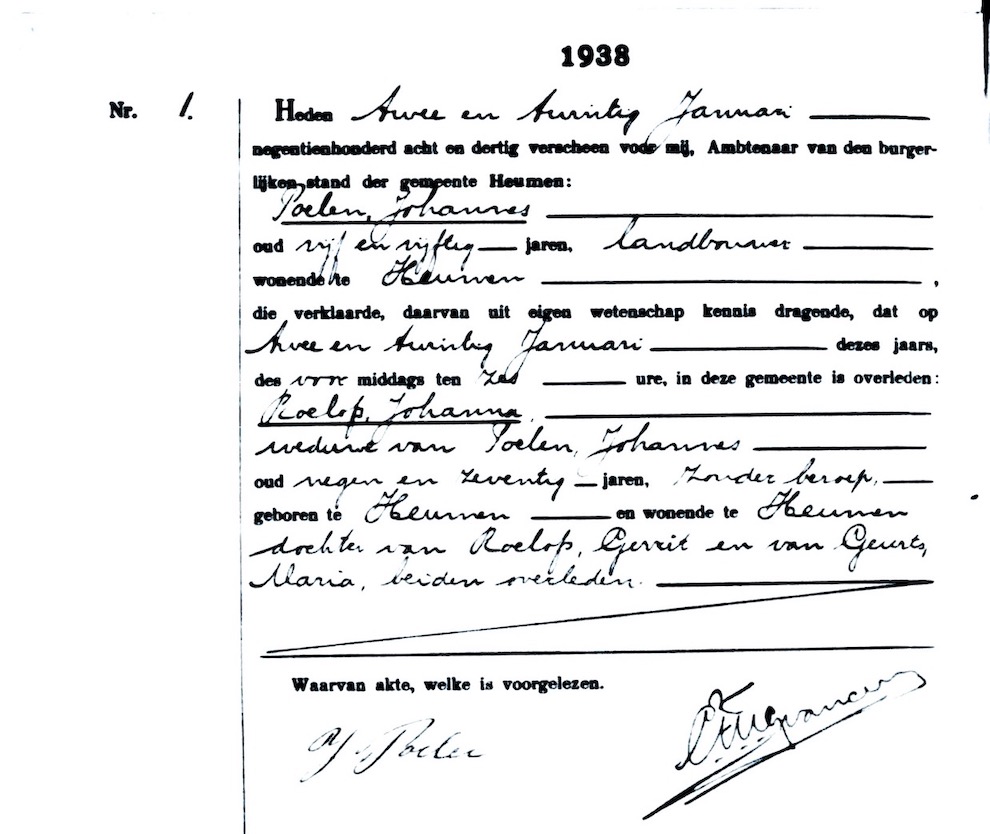 1938
Nr. 1. Heden twee en twintig Januari
negentienhonderd acht en dertig verscheen voor mij, Ambtenaar van den burger-
lijken stand der gemeente Heumen:
Poelen, Johannes
oud vijf en vijftig jaren, landbouwer
wonende te Heumen ,
die verklaarde, daarvan uit eigen wetenschap kennis dragende, dat op
twee en twintig Januari dezes jaars,
des voor middags ten zes ure, in deze gemeente is overleden:
Roelofs, Johanna,
weduwe van Poelen, Johannes
oud negen en zeventig jaren, zonder beroep,
geboren te Heumen en wonende te Heumen
dochter van Roelofs, Gerrit en van Geurts,
Maria, beiden overleden.
Waarvan akte, welke is voorgelezen.
Poelen